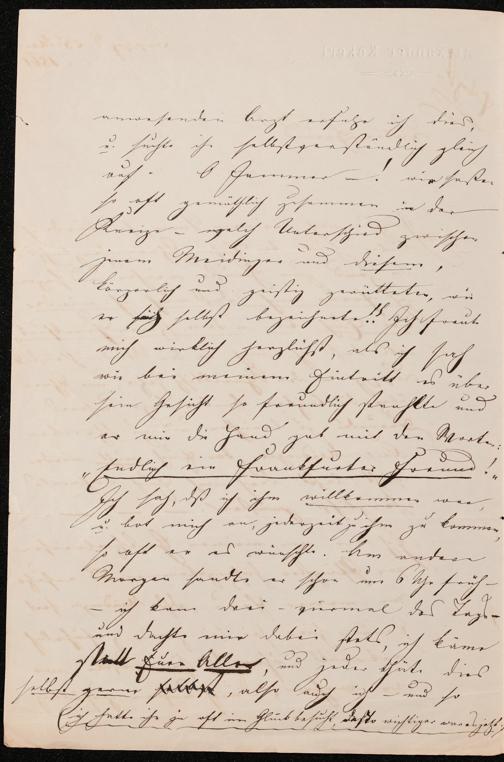 anwesenden Arzt erfuhr ich dies,
u. suchte ihn selbstverständlich gleich
auf. O Jammer –! wir saßen
so oft gemüthlich zusammen in der
Kneipe – welch Unterschied zwischen
jenem Meidinger und diesem,
körperlich und geistig zerrütteten, wie
er sich selbst bezeichnete!! Ich freute
mich wirklich herzlichst, als ich sah
wie bei meinem Eintritt es über
sein Gesicht so freundlich strahlte und
er mir die Hand gab mit den Worten:
„Endlich ein Frankfurter Freund!"
Ich sah, daß ich ihm willkommen war,
u. bot mich an, jederzeit zu ihm zu kommen,
so oft er es wünschte. Am andern
Morgen sandte er schon um 6 Uhr früh –
– ich kam drei - viermal des Tags –
und dachte mir dabei stets, ich käme
statt Euer Aller, und jeder thäte dies
selbst gerne, also auch ich – und so
(ich hatte ihn ja oft im Glück besucht, desto wichtiger war es jetzt